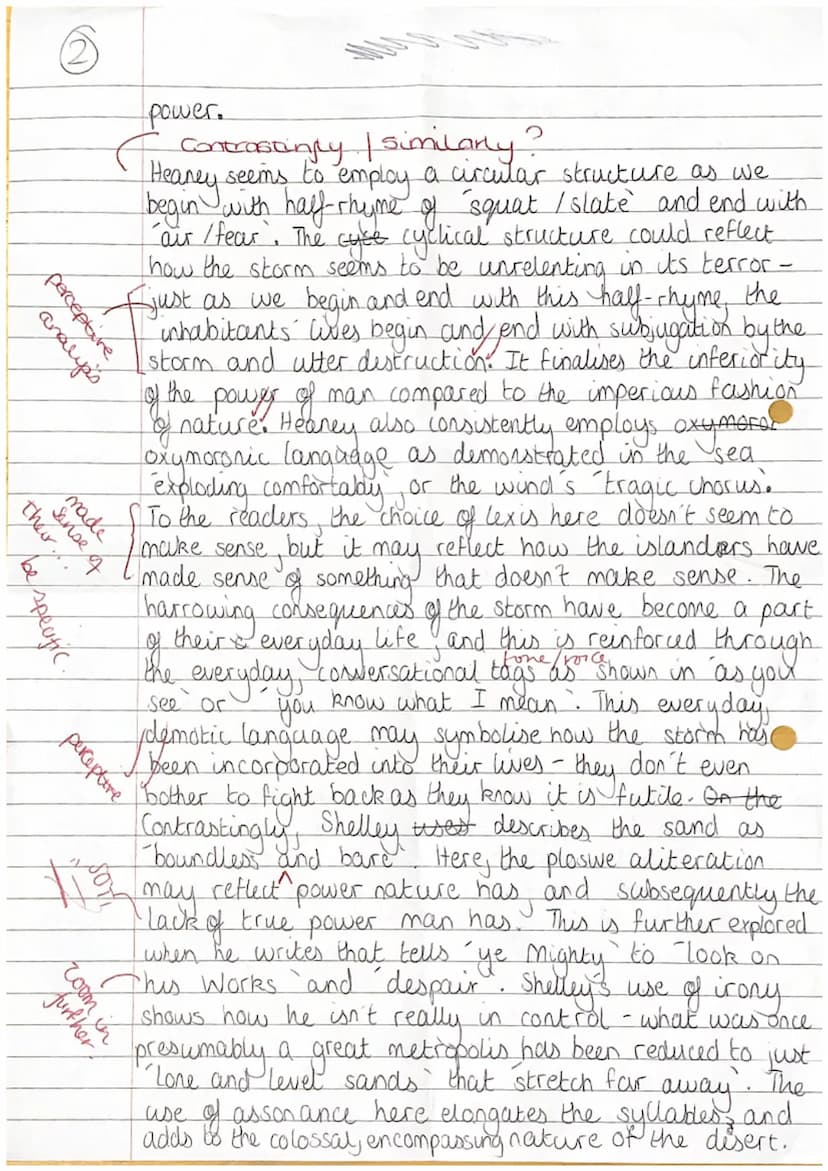 2
power.
Contrastingly / similarly?
Heaney seems to employ a circular structure as we
begin with half-rhyme of 'squat / slate' and end with
'air / fear'. The cycle cyclical structure could reflect
how the storm seems to be unrelenting in its terror -
perceptive analysis
just as we begin and end with this half-rhyme, the
inhabitants' lives begin and end with subjugation by the
storm and utter destruction. It finalises the inferiority
of the power of man compared to the imperious fashion
of nature. Heaney also consistently employs oxymoron
oxymoronic language as demonstrated in the sea
'exploding comfortably' or the wind's 'tragic chorus'.
made sense of their...
be specific.
To the readers, the choice of lexis here doesn't seem to
make sense, but it may reflect how the islanders have
made sense of something that doesn't make sense. The
harrowing consequences of the storm have become a part
of their everyday life, and this is reinforced through
tone/voice
the everyday, conversational tags as shown in 'as you
see' or 'you know what I mean'. This everyday,
perceptive
demotic language may symbolise how the storm has
been incorporated into their lives - they don't even
bother to fight back as they know it is futile. On the
Contrastingly, Shelley uses describes the sand as
'boundless and bare'. Here, the plosive aliteration
may reflect ^ power nature has, and subsequently the
lack of true power man has. This is further explored
when he writes that tells 'ye Mighty' to 'look on
zoom in further.
his Works' and 'despair'. Shelley's use of irony
shows how he isn't really in control - what was once
presumably a great metropolis has been reduced to just
'lone and level sands' that 'stretch far away'. The
use of assonance here elongates the syllables, and
adds to the colossal, encompassing nature of the desert.